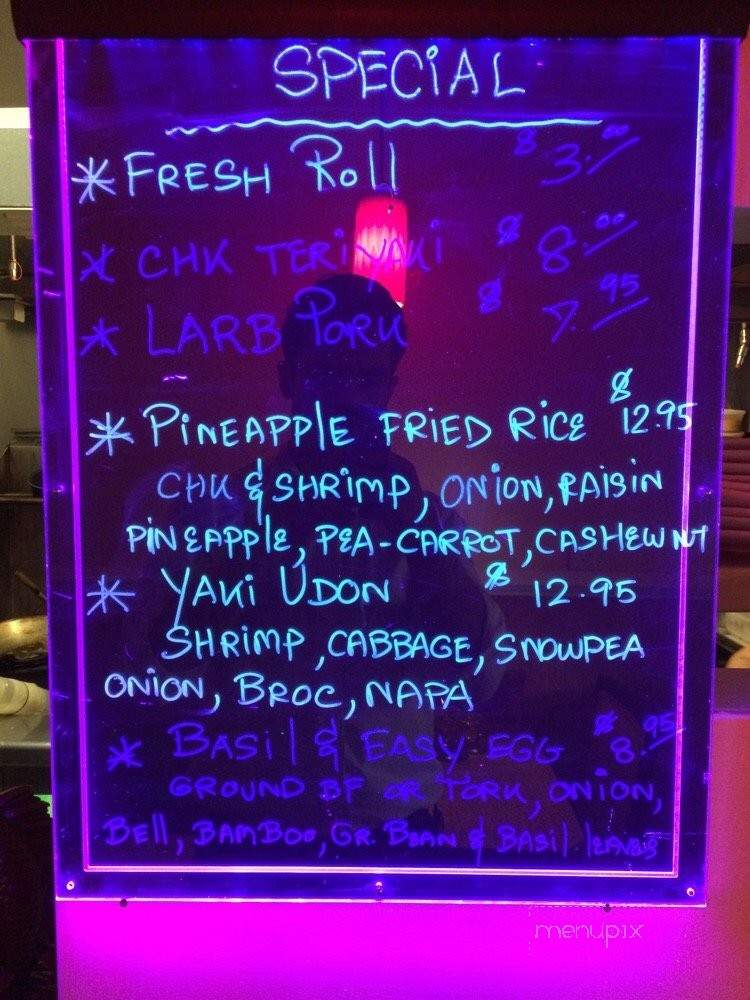 SPECiAL
* FRESH Roll $ 3.00
* CHK TERiYAKi $ 8.00
* LARB PORK $ 7.95
* PiNEAPPlE FRiED RiCE $ 12.95
CHK & SHRiMP, ONiON, RAiSiN
PiNEAPPlE, PEA-CARROT, CASHEW NT
* YAKi UDON $ 12.95
SHRiMP, CABBAGE, SNOWPEA
ONiON, BROC, NAPA
* BASil & EASY EGG $ 8.95
GROUND BF OR PORK, ONiON,
BEll, BAMBOO, GR. BEAN & BASil lEAVES
menupix